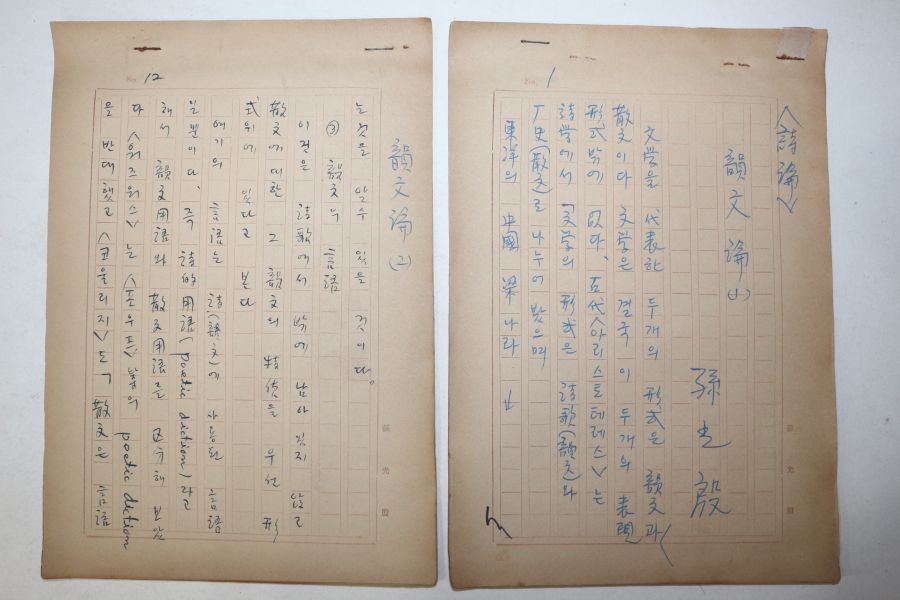 <詩論>
韻文論 (1)
文学을 代表한 두개의 形式은 韻文과
散文이다 文学은 결국 이 두개의 表現
形式 밖에 없다、古代<아리스토테레스>는
詩学에서 「文学의 形式은 詩歌(韻文)와
史(散文)로 나누어 봤으며
東洋의 中國 梁나라
No. 1
韻文論 (2)
는것을 알수 있을 것이다。
③ 韻文의 言語
이것은 詩歌에서 밖에 남아 있지 않고
散文에대한 그 韻文의 特徵을 우선 形
式위에 있다고 본다
여기의 言語는 詩(韻文)에 사용된 言語
일뿐이다、즉 詩的用語(poetic diction)라고
해서 韻文用語와 散文用語를 구해 보았
다 <워즈워스>는 <포우프> 의 poetic diction
을 반대했고 <코울리지>도 「散文은 言語
No. 12